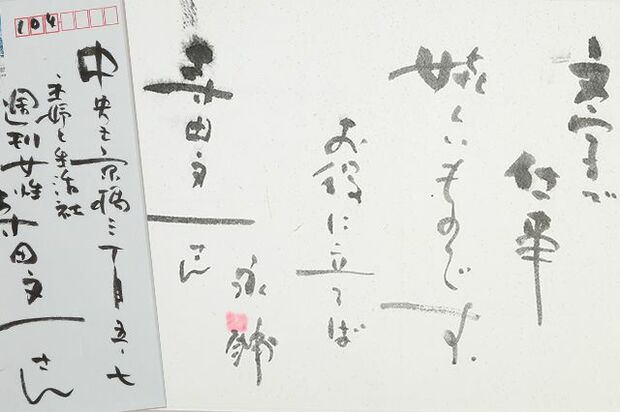 文字で
仕事
嬉しいものです。
お役に立てば
田文一
さん
永
輔
104
中央区京橋三丁目五・七
主婦と生活社
週刊女性
田文一
さん